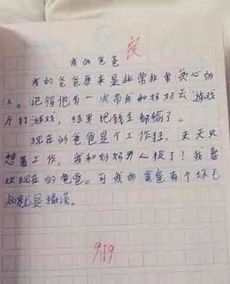 我的爸爸
我的爸爸原来是非常非常贪心的
人。记得他有一次带我和好好去游戏
厅打游戏，结果把钱全都输了。
现在的爸爸是个工作狂，天天只
想着工作，我和好好开心极了！我喜
欢现在的爸爸。可我的爸爸有个坏毛
病就是
9/19